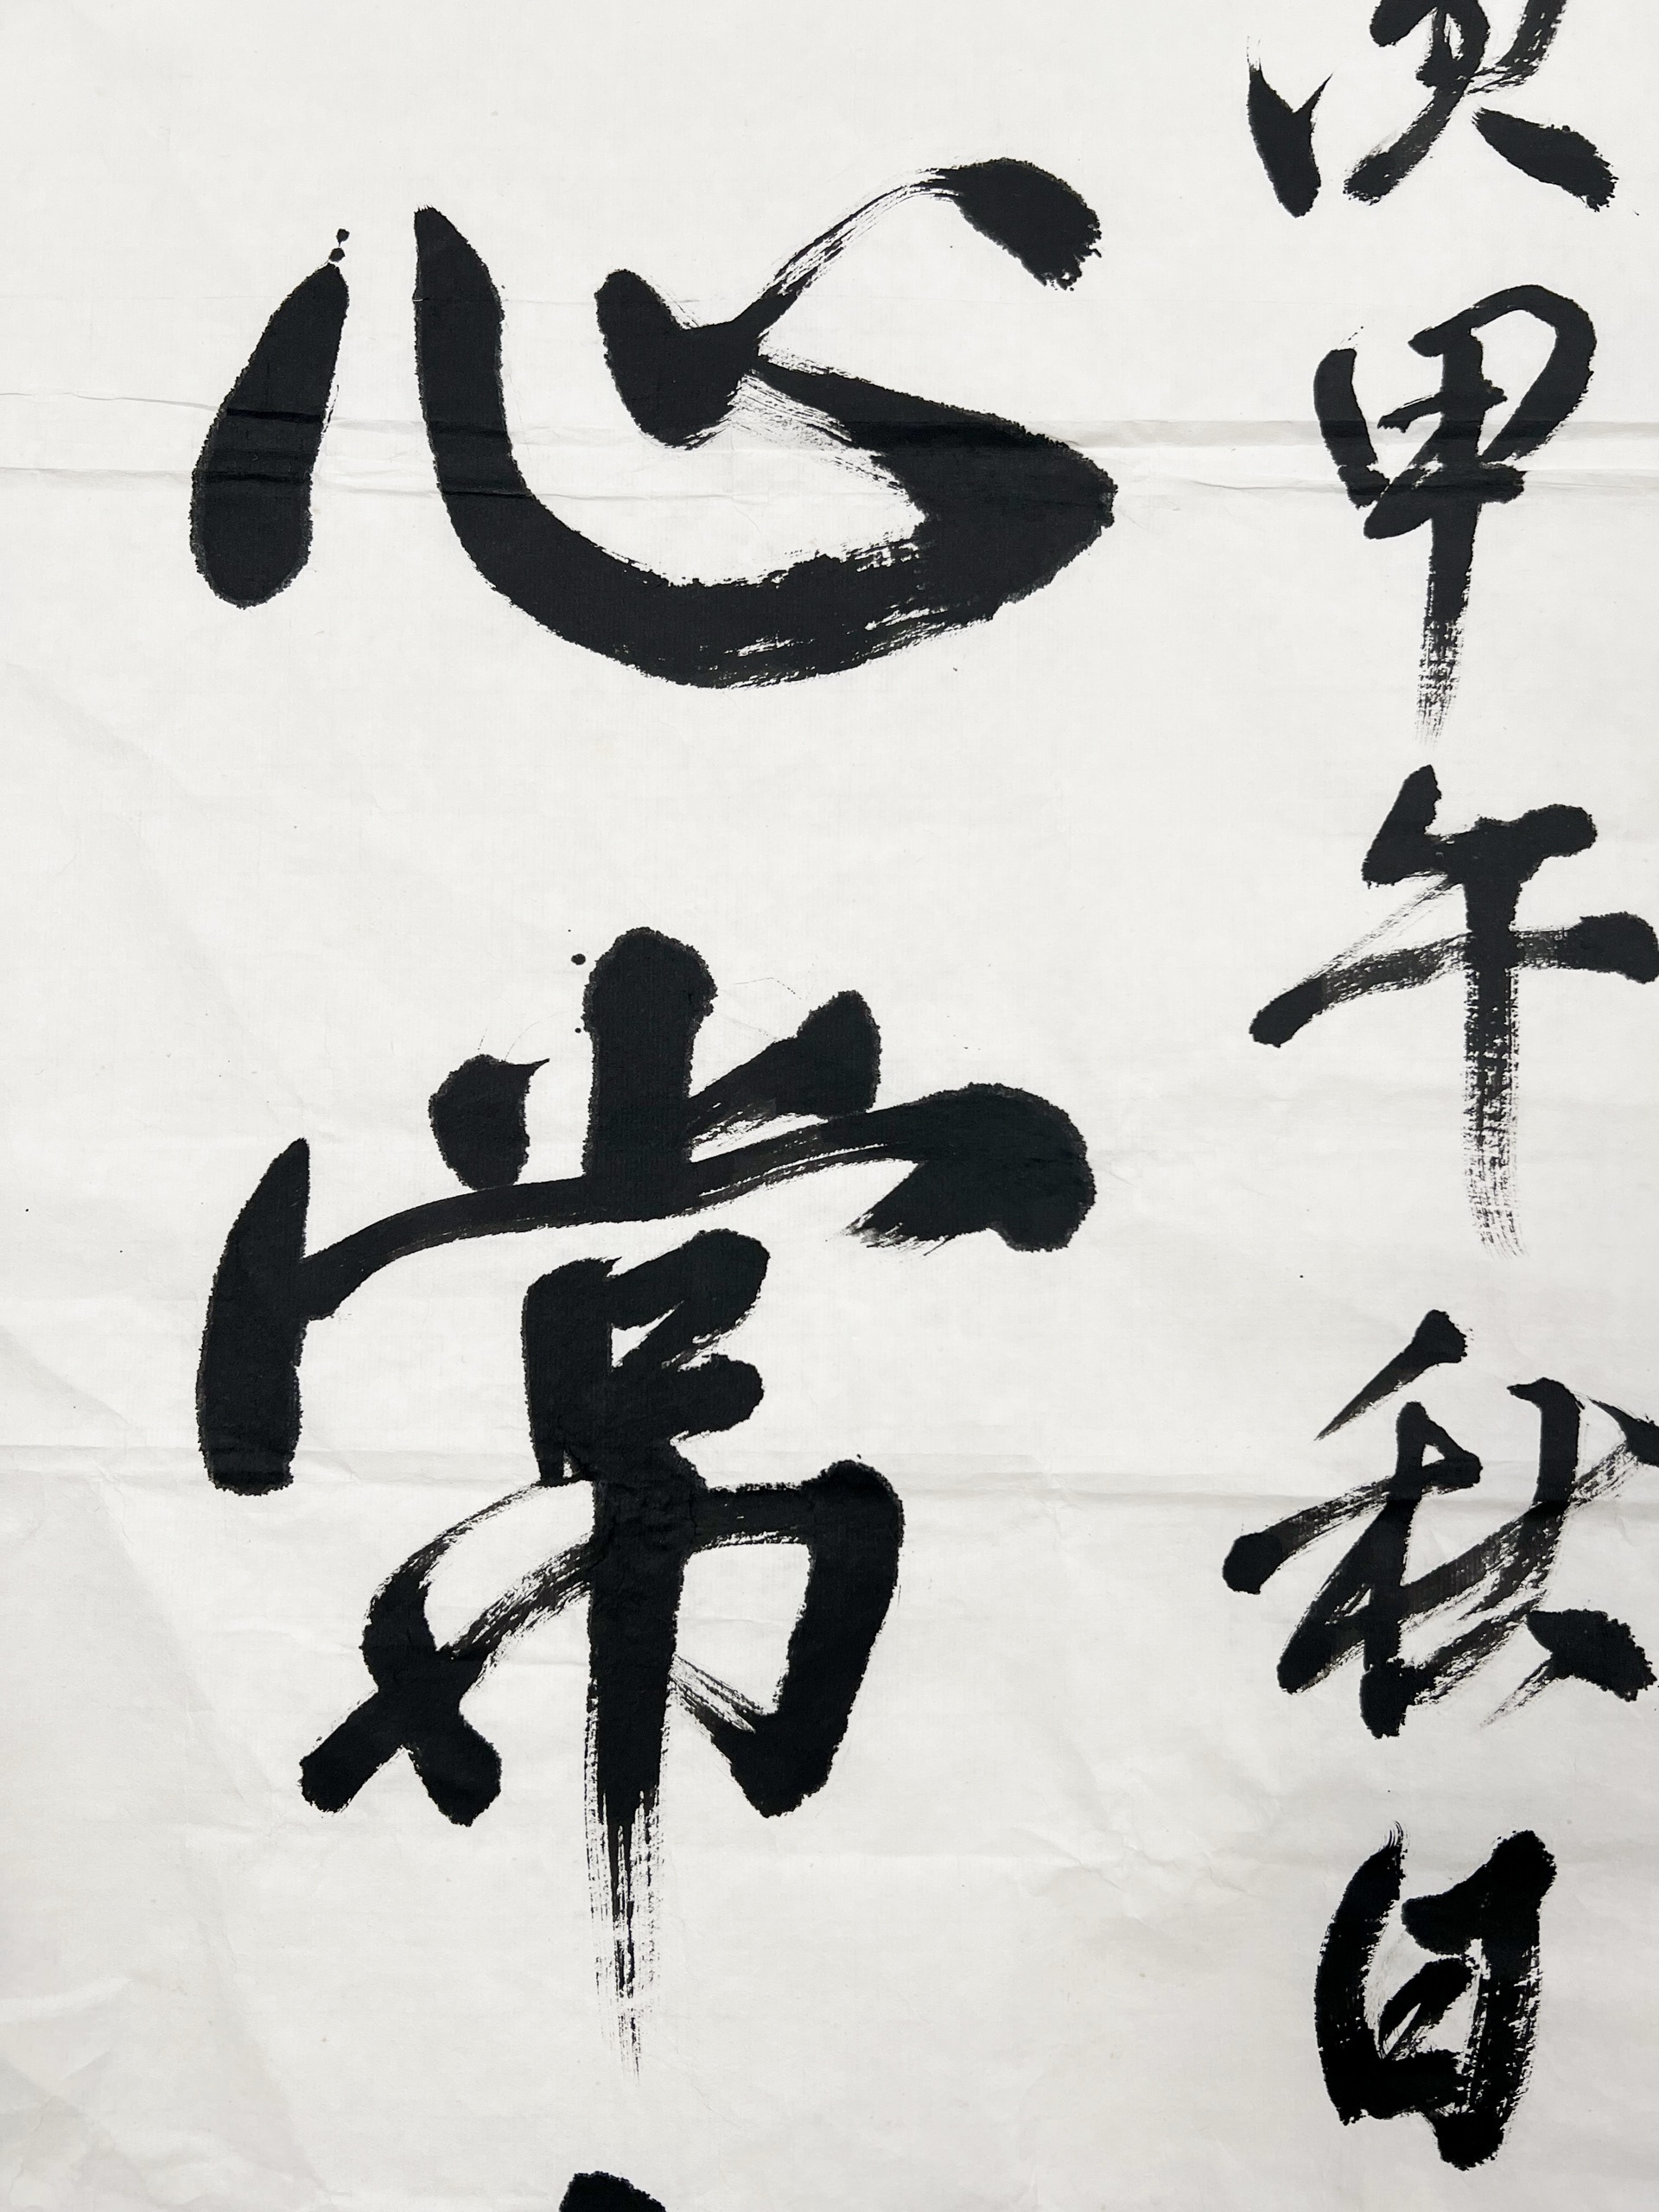 甲午秋日
心常